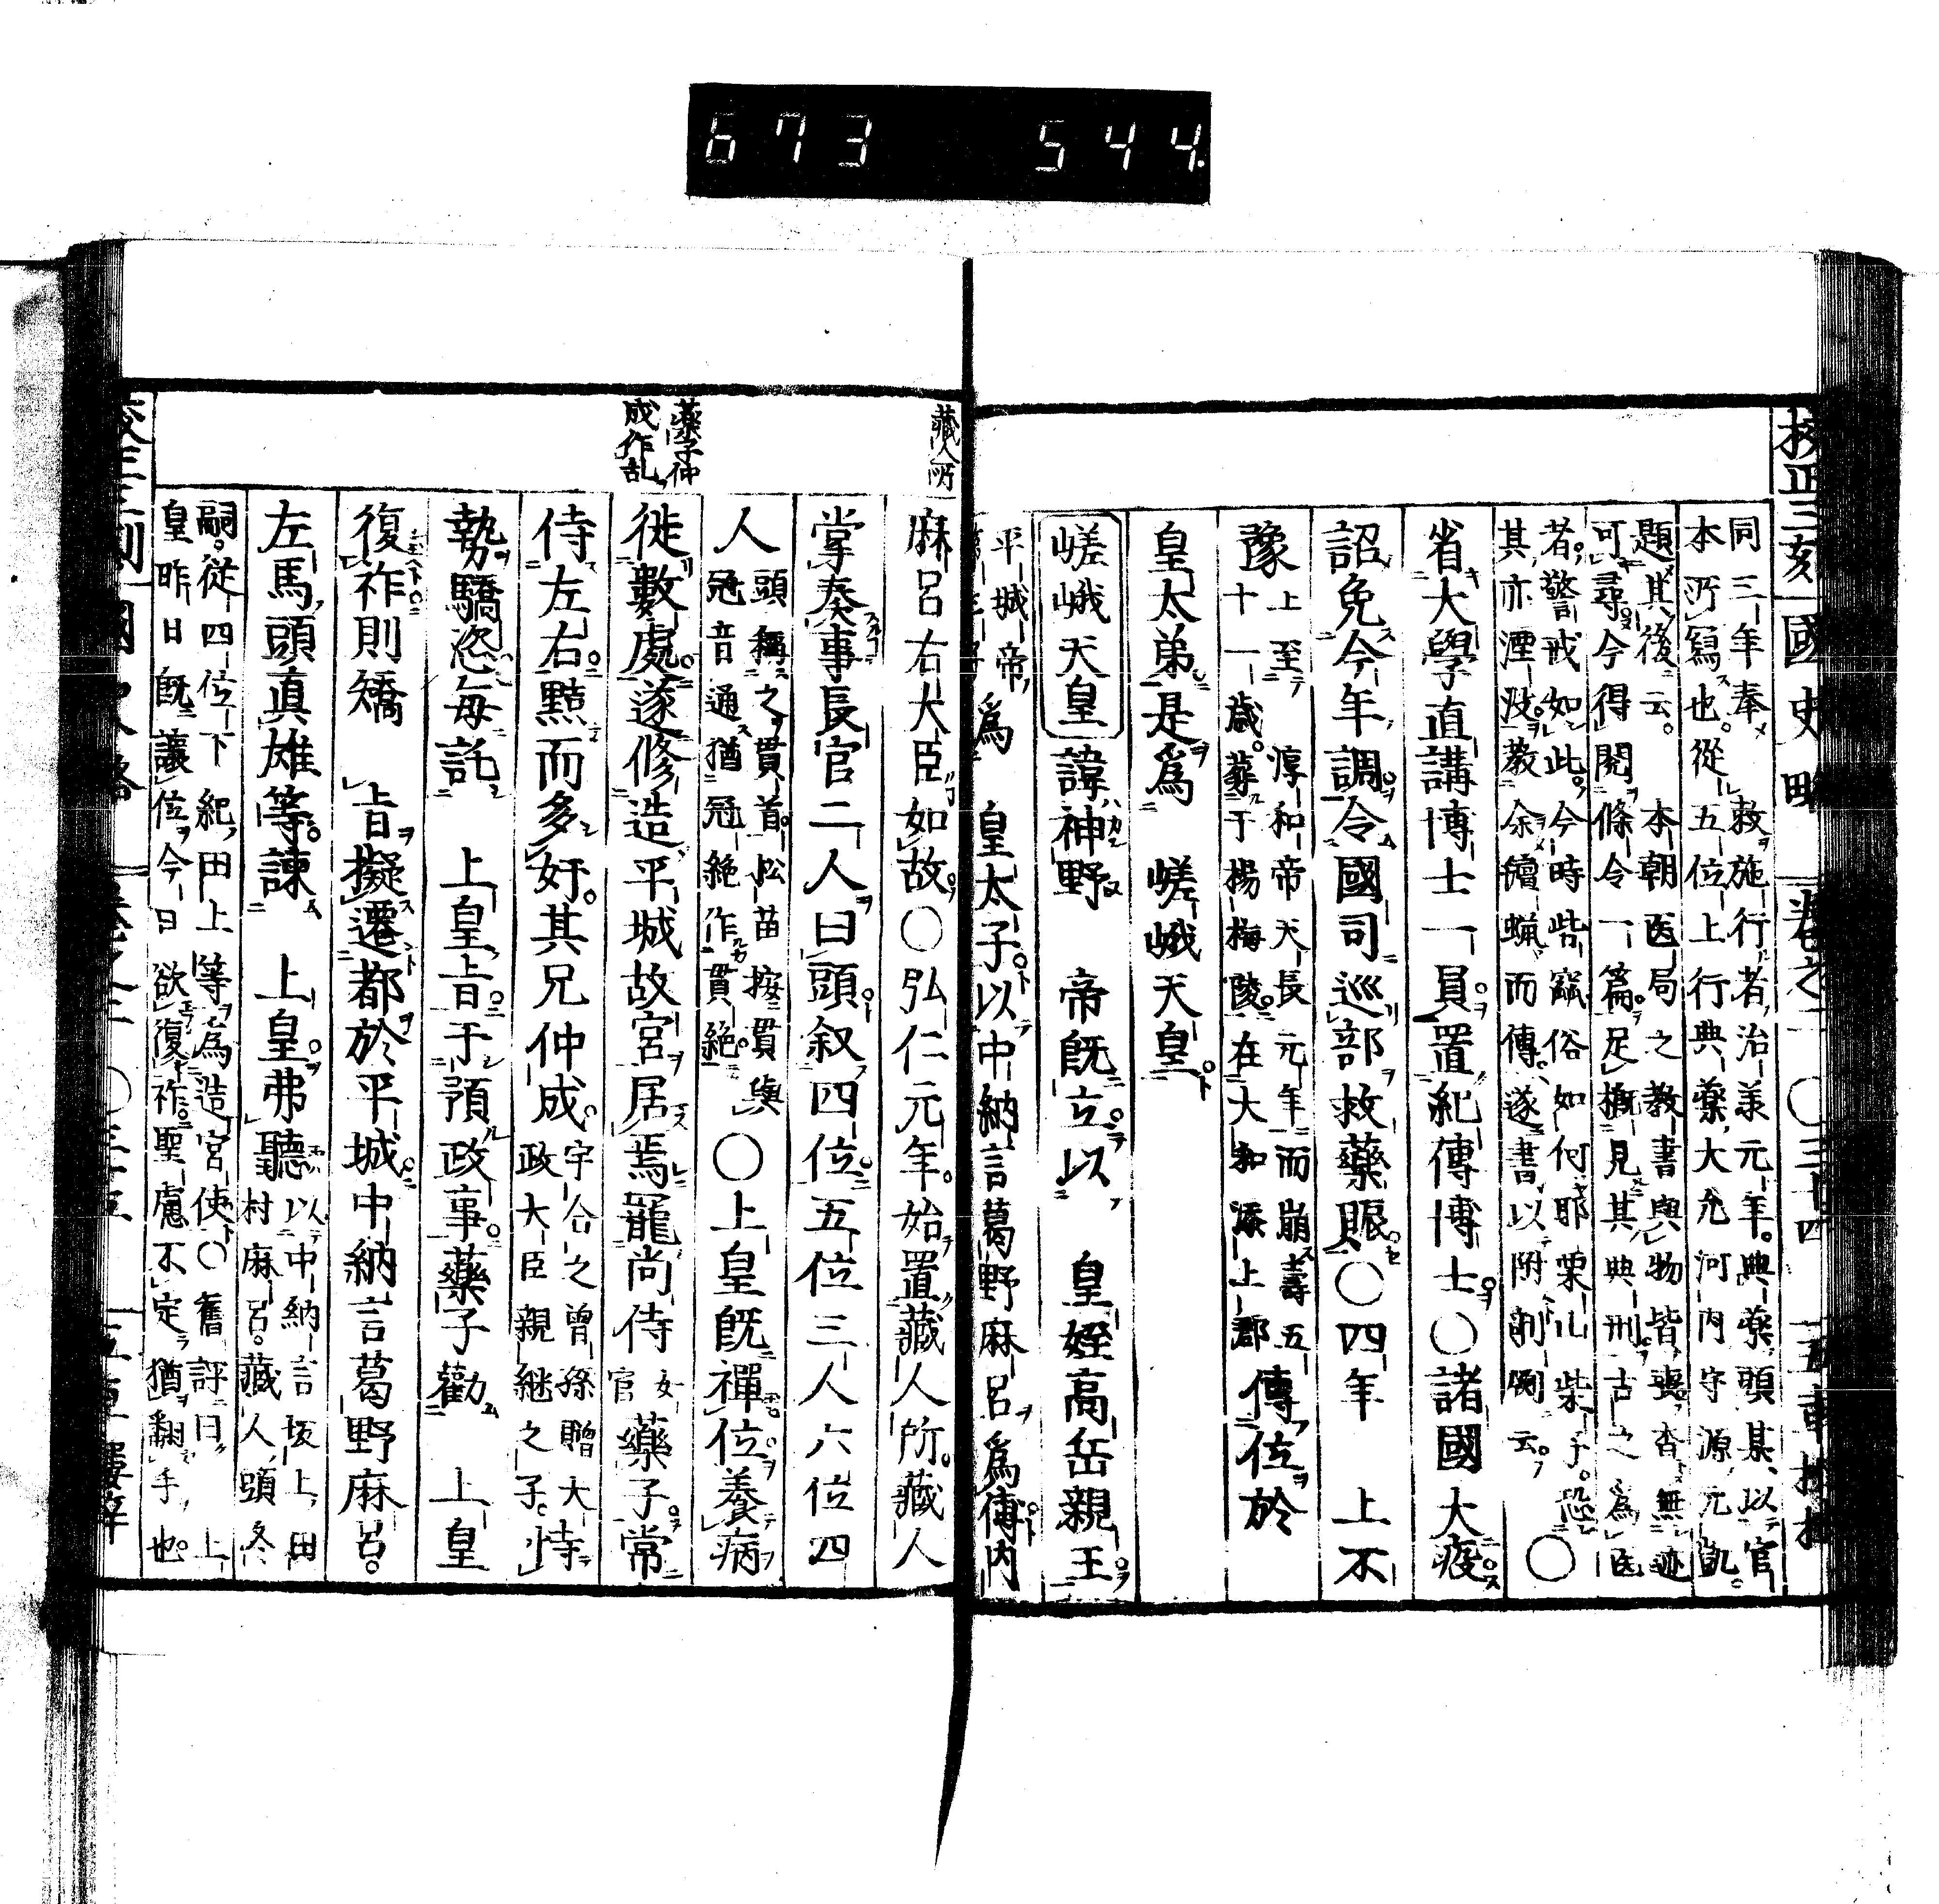 673 544
校正三刻 國史略 卷之二 〇三十四 五車樓梓
同三年奉 敕施行者治承元年典藥頭某以官
本所寫也從五位上行典藥大允河内守源元凱
題其後云 本朝医局之教書與物皆喪杳無迹
可尋今得閲條令一篇足概見其典刑古之為医
者警戒如此今時呰窳俗如何耶栗山柴子恐
其亦湮没教余鐫蝋而傳遂書以附剞劂云 〇
省大學直講博士一員置紀傳博士〇諸國大疫
詔免今年調令國司巡部救藥賑〇四年 上不
豫上至淳和帝天長元年而崩壽五
十一歳葬于楊梅陵在大和添上郡傳位於
皇太弟是爲 嵯峨天皇
嵯峨天皇 諱神野 帝既立以 皇姪高岳親王
平城帝爲 皇太子以中納言葛野麻呂爲傅内
藏人所
麻呂右大臣如故〇弘仁元年始置藏人所藏人
掌奏事長官二人曰頭叙四位五位三人六位四
人頭稱之貫首松苗按貫與
冠音通猶冠絶作貫絶〇上皇既禪位養病
徙數處遂修造平城故宮居焉寵尚侍女官藥子常
藥子仲
成作乱
侍左右黠而多奸其兄仲成宇合之曾孫贈大
政大臣親継之子恃
勢驕恣毎託 上皇旨于預政事藥子勸 上皇
復祚則矯 旨擬遷都於平城中納言葛野麻呂
左馬頭真雄等諫 上皇弗聽以中納言坂上田
村麻呂藏人頭冬
嗣從四位下紀田上等為造宮使〇舊評曰上
皇昨日既讓位今日欲復祚聖慮不定猶翻手也